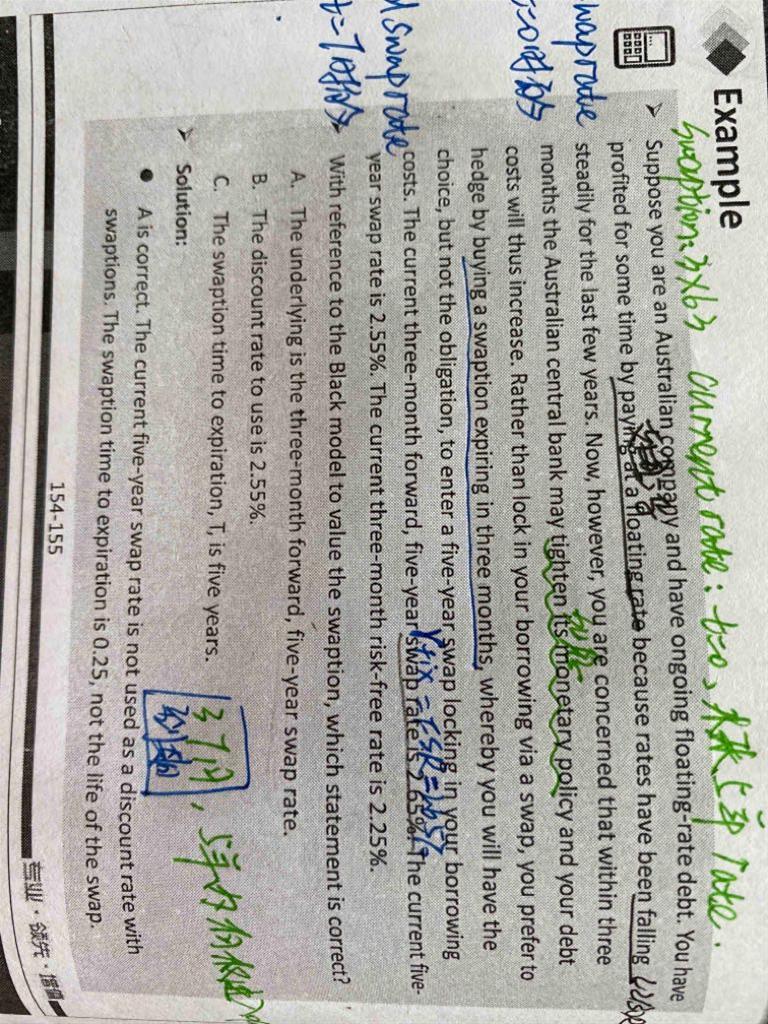 Example
swaption: 3×63 current rate: t=0, 未来上升 rate.
Suppose you are an Australian company and have ongoing floating-rate debt. You have
profited for some time by paying at a floating rate because rates have been falling
steadily for the last few years. Now, however, you are concerned that within three
months the Australian central bank may tighten its monetary policy and your debt
costs will thus increase. Rather than lock in your borrowing via a swap, you prefer to
hedge by buying a swaption expiring in three months, whereby you will have the
choice, but not the obligation, to enter a five-year swap locking in your borrowing
costs. The current three-month forward, five-year swap rate is 2.65%. The current five-
year swap rate is 2.55%. The current three-month risk-free rate is 2.25%.
With reference to the Black model to value the swaption, which statement is correct?
A. The underlying is the three-month forward, five-year swap rate.
B. The discount rate to use is 2.55%.
C. The swaption time to expiration, T, is five years.
Solution:
● A is correct. The current five-year swap rate is not used as a discount rate with
swaptions. The swaption time to expiration is 0.25, not the life of the swap.
swap rate
swap rate
3个月
到期
154-155
专业·领先·增值